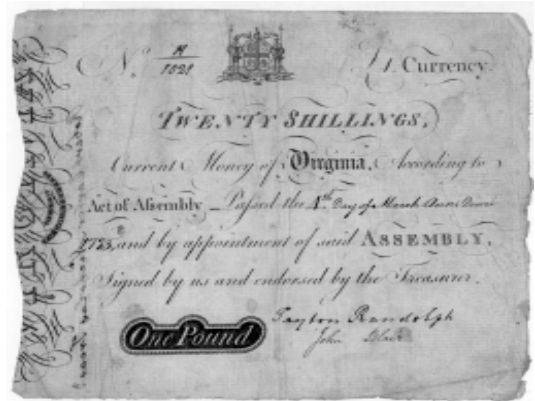 No. 1821 £1. Currency.
TWENTY SHILLINGS,
Current Money of Virginia, According to
Act of Assembly Passed the 4th Day of March Anno Dom
1773, and by appointment of said ASSEMBLY,
Signed by us and endorsed by the Treasurer.
Peyton Randolph
John Blair
One Pound